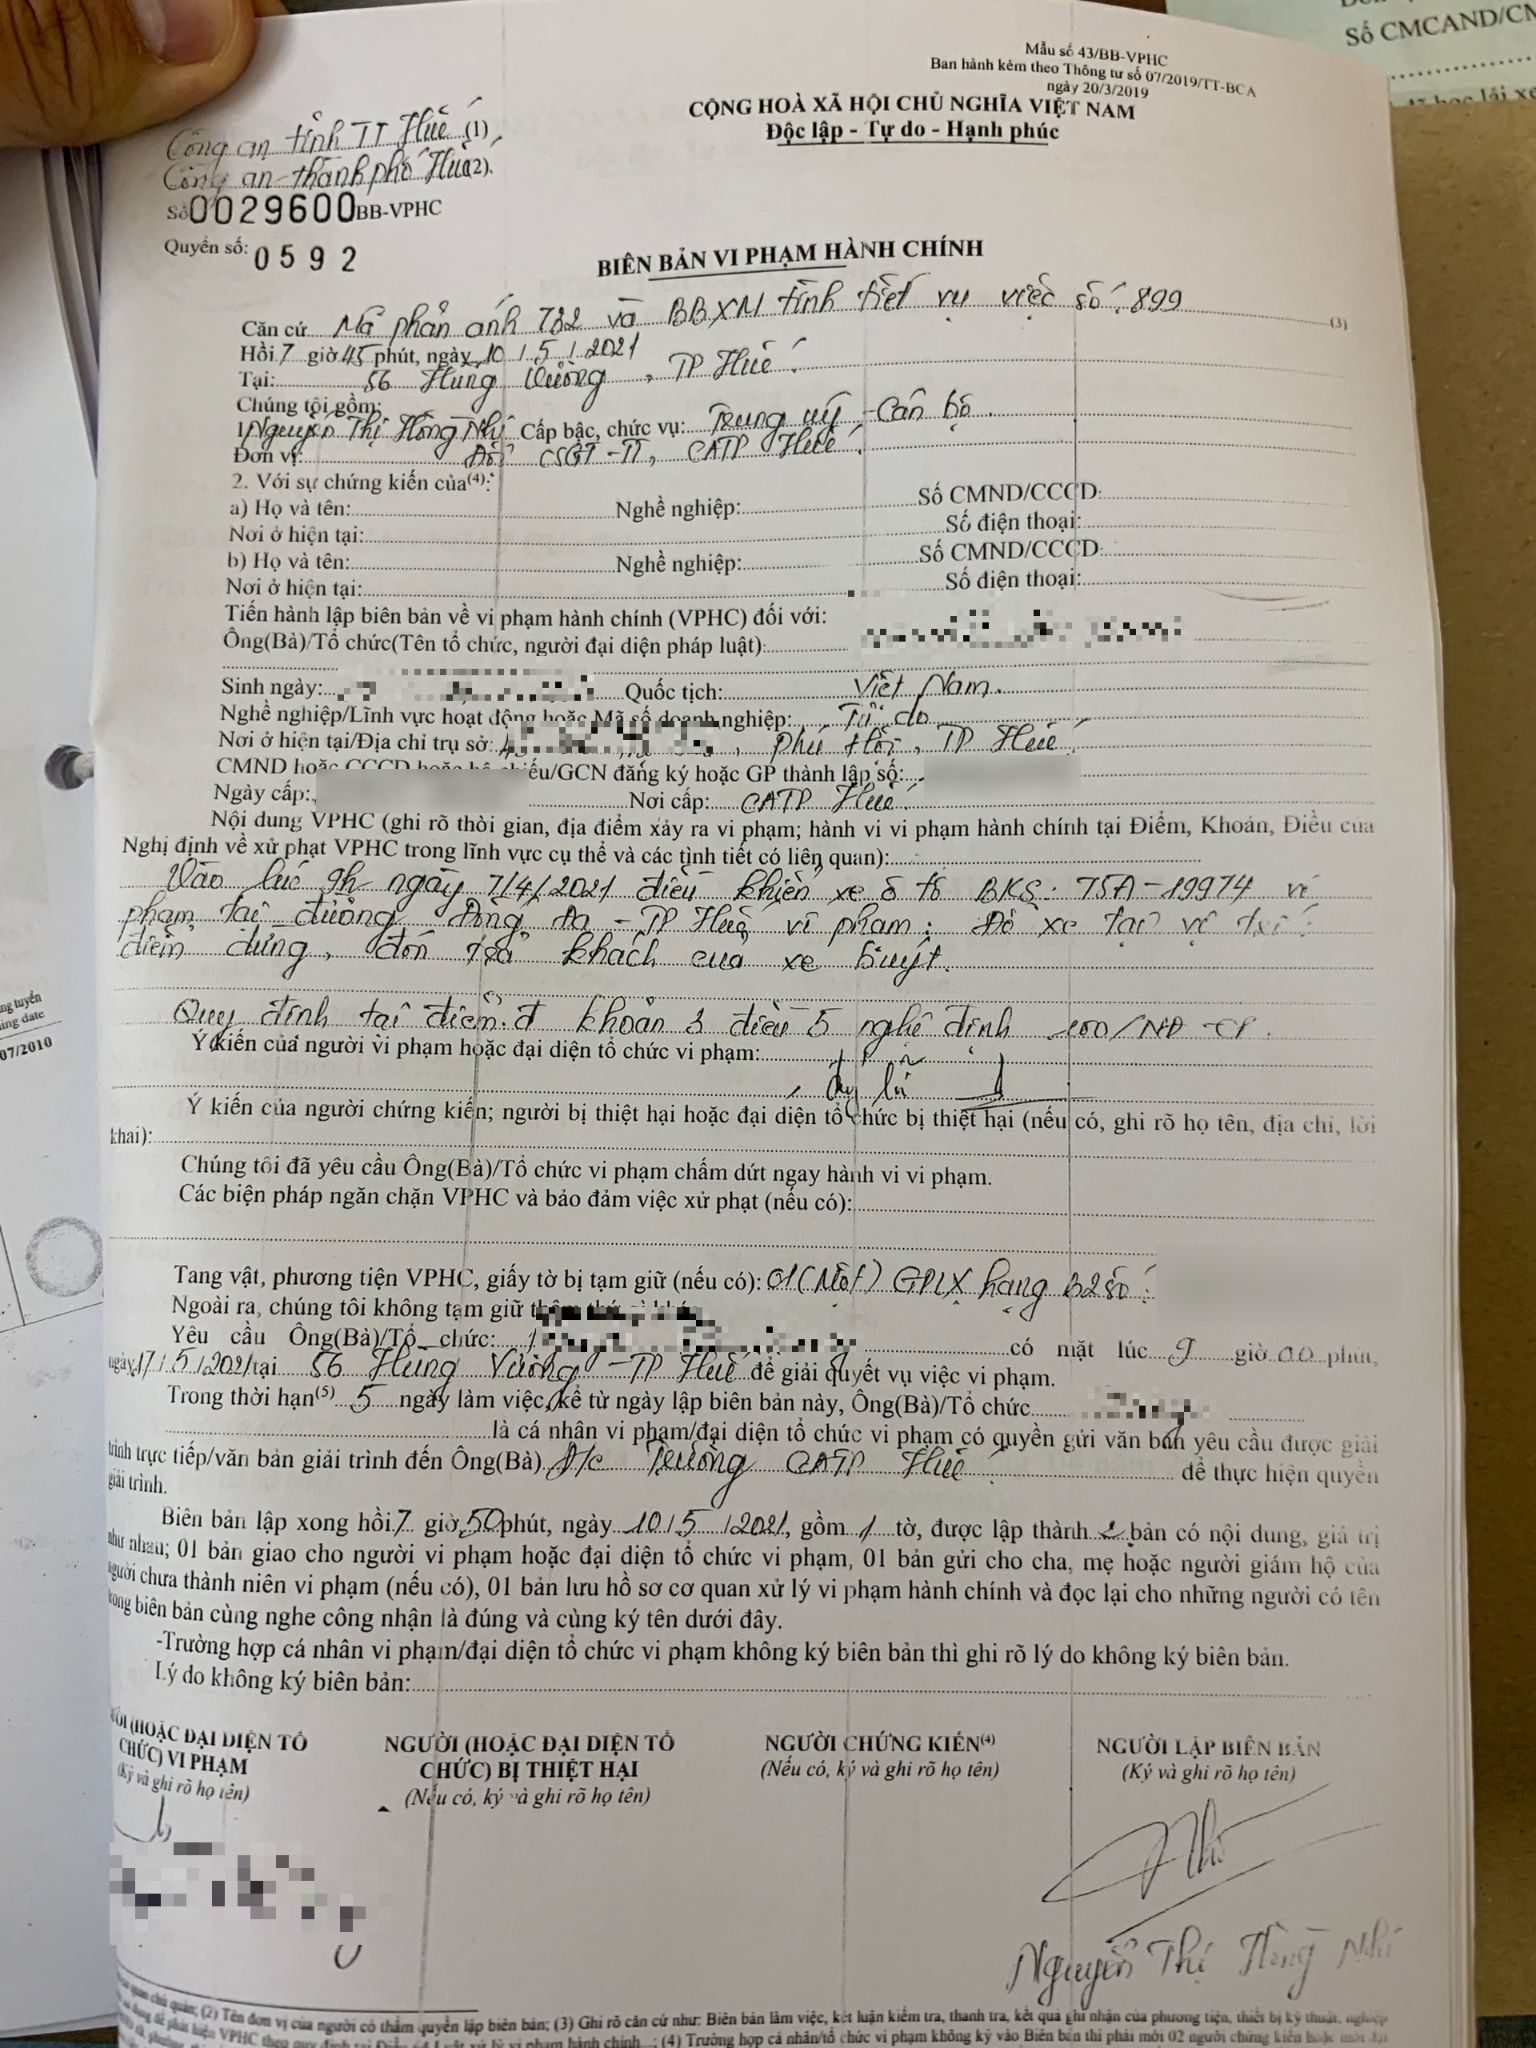 Số CMCAND/CM
đã học lái xe
Mẫu số 43/BB-VPHC
Ban hành kèm theo Thông tư số 07/2019/TT-BCA
ngày 20/3/2019
CỘNG HOÀ XÃ HỘI CHỦ NGHĨA VIỆT NAM
Độc lập - Tự do - Hạnh phúc
Công an tỉnh TT Huế (1)
Công an thành phố Huế (2).
Số 0029600 BB-VPHC
Quyển số: 0592
BIÊN BẢN VI PHẠM HÀNH CHÍNH
Căn cứ Mã phản ánh 732 và BBXM tình tiết vụ việc số: 899 (3)
Hồi 7 giờ 45 phút, ngày 10/5/2021
Tại: 56 Hùng Vương, TP Huế.
Chúng tôi gồm:
1. Nguyễn Thị Hồng Nhi Cấp bậc, chức vụ: Trung uý - Cán bộ.
Đơn vị: Đội CSGT-TT, CATP Huế.
2. Với sự chứng kiến của(4):
a) Họ và tên: Nghề nghiệp: Số CMND/CCCD:
Nơi ở hiện tại: Số điện thoại:
b) Họ và tên: Nghề nghiệp: Số CMND/CCCD:
Nơi ở hiện tại: Số điện thoại:
Tiến hành lập biên bản về vi phạm hành chính (VPHC) đối với:
Ông(Bà)/Tổ chức(Tên tổ chức, người đại diện pháp luật):
Sinh ngày: Quốc tịch: Việt Nam.
Nghề nghiệp/Lĩnh vực hoạt động hoặc Mã số doanh nghiệp: Tự do
Nơi ở hiện tại/Địa chỉ trụ sở: , Phú Hội, TP Huế.
CMND hoặc CCCD hoặc hộ chiếu/GCN đăng ký hoặc GP thành lập số:
Ngày cấp: Nơi cấp: CATP Huế.
Nội dung VPHC (ghi rõ thời gian, địa điểm xảy ra vi phạm; hành vi vi phạm hành chính tại Điểm, Khoản, Điều của
Nghị định về xử phạt VPHC trong lĩnh vực cụ thể và các tình tiết có liên quan):
Vào lúc 9h ngày 7/4/2021 điều khiển xe ô tô BKS: 75A-19974 vi
phạm tại đường Đống Đa - TP Huế vi phạm: Đỗ xe tại vị trí:
điểm dừng, đón trả khách của xe buýt.
Quy định tại điểm đ khoản 3 điều 5 nghị định 100/NĐ-CP.
Ý kiến của người vi phạm hoặc đại diện tổ chức vi phạm:
Ý kiến của người chứng kiến; người bị thiệt hại hoặc đại diện tổ chức bị thiệt hại (nếu có, ghi rõ họ tên, địa chỉ, lời
khai):
Chúng tôi đã yêu cầu Ông(Bà)/Tổ chức vi phạm chấm dứt ngay hành vi vi phạm.
Các biện pháp ngăn chặn VPHC và bảo đảm việc xử phạt (nếu có):
Tang vật, phương tiện VPHC, giấy tờ bị tạm giữ (nếu có): 01 (Một) GPLX hạng B2 số:
Ngoài ra, chúng tôi không tạm giữ
Yêu cầu Ông(Bà)/Tổ chức: có mặt lúc 9 giờ 00 phút,
ngày 17/5/2021 tại 56 Hùng Vương - TP Huế để giải quyết vụ việc vi phạm.
Trong thời hạn(5) 5 ngày làm việc, kể từ ngày lập biên bản này, Ông(Bà)/Tổ chức
là cá nhân vi phạm/đại diện tổ chức vi phạm có quyền gửi văn bản yêu cầu được giải
trình trực tiếp/văn bản giải trình đến Ông(Bà) Đ/c Trưởng CATP Huế để thực hiện quyền
giải trình.
Biên bản lập xong hồi 7 giờ 50 phút, ngày 10/5/2021, gồm 1 tờ, được lập thành 2 bản có nội dung, giá trị
như nhau; 01 bản giao cho người vi phạm hoặc đại diện tổ chức vi phạm, 01 bản gửi cho cha, mẹ hoặc người giám hộ của
người chưa thành niên vi phạm (nếu có), 01 bản lưu hồ sơ cơ quan xử lý vi phạm hành chính và đọc lại cho những người có tên
trong biên bản cùng nghe công nhận là đúng và cùng ký tên dưới đây.
-Trường hợp cá nhân vi phạm/đại diện tổ chức vi phạm không ký biên bản thì ghi rõ lý do không ký biên bản.
Lý do không ký biên bản:
(HOẶC ĐẠI DIỆN TỔ
CHỨC) VI PHẠM
(Ký và ghi rõ họ tên)
NGƯỜI (HOẶC ĐẠI DIỆN TỔ
CHỨC) BỊ THIỆT HẠI
(Nếu có, ký và ghi rõ họ tên)
NGƯỜI CHỨNG KIẾN(4)
(Nếu có, ký và ghi rõ họ tên)
NGƯỜI LẬP BIÊN BẢN
(Ký và ghi rõ họ tên)
Nguyễn Thị Hồng Nhi
quan chủ quản; (2) Tên đơn vị của người có thẩm quyền lập biên bản; (3) Ghi rõ căn cứ như: Biên bản làm việc, kết luận kiểm tra, thanh tra, kết quả ghi nhận của phương tiện, thiết bị kỹ thuật, nghiệp
(4) Trường hợp cá nhân/tổ chức vi phạm không ký vào Biên bản thì phải mời 02 người chứng kiến hoặc mời đại
ng tuyển
ing date
07/2010